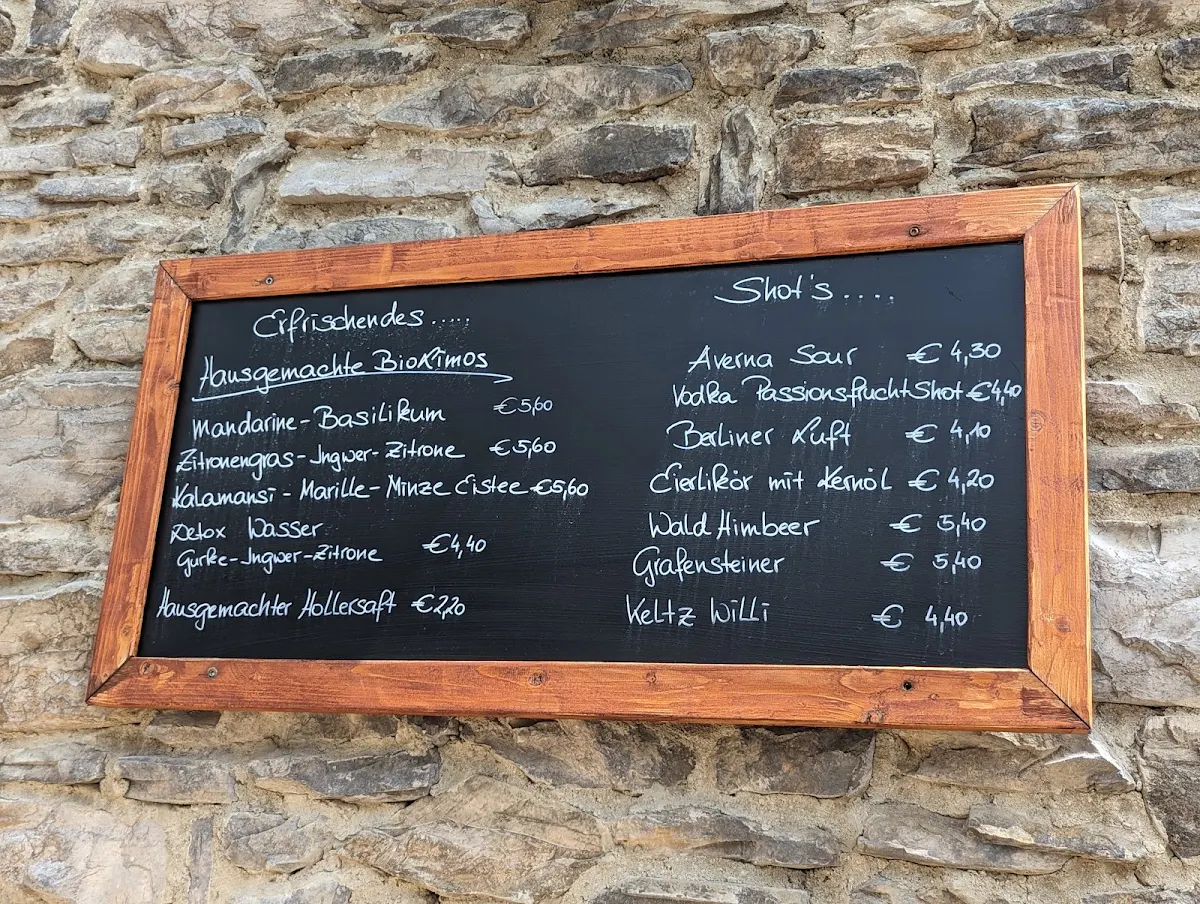 Erfrischendes .....
Hausgemachte BioLimos
Mandarine-Basilikum €5,60
Zitronengras-Ingwer-Zitrone €5,60
Kalamansi - Marille-Minze Eistee €5,60
Detox Wasser
Gurke-Ingwer-Zitrone €4,40
Hausgemachter Hollersaft €2,20
Shot's ....
Averna Sour € 4,30
Vodka Passionsfrucht Shot €4,40
Berliner Luft € 4,10
Eierlikör mit Kernöl € 4,20
Wald Himbeer € 5,40
Grafensteiner € 5,40
Keltz Willi € 4,40